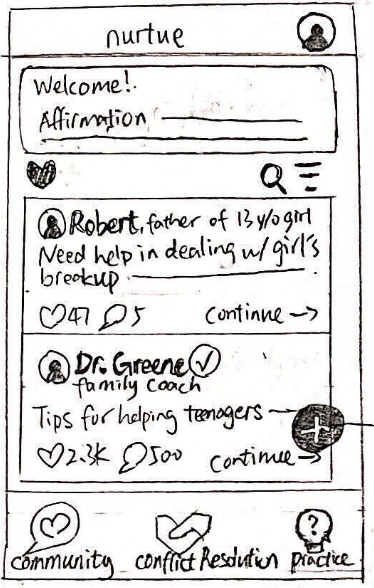 nurtue
Welcome!
Affirmation
Robert, father of 13 y/o girl
Need help in dealing w/ girl's
breakup
47 5 Continue →
Dr. Greene
family coach
Tips for helping teenagers
2.3K 500 Continue →
community conflict Resolution practice
?